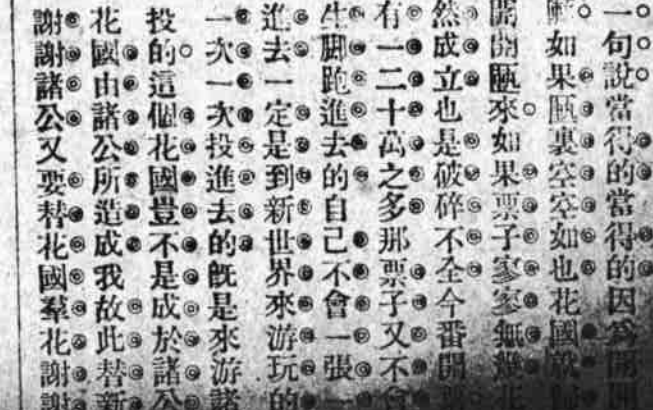 一句說當得的當得的因爲開
如果匭裏空空如也花國就
開開匭來如果票子寥寥無幾花
然成立也是破碎不全今番開
有一二十萬之多那票子又不會
生脚跑進去的自己不會一張一
進去一定是到新世界來游玩的
一次一次投進去的旣是來游諸
投的這個花國豈不是成於諸公
花國由諸公所造成我故此替新
謝謝諸公又要替花國羣花謝謝